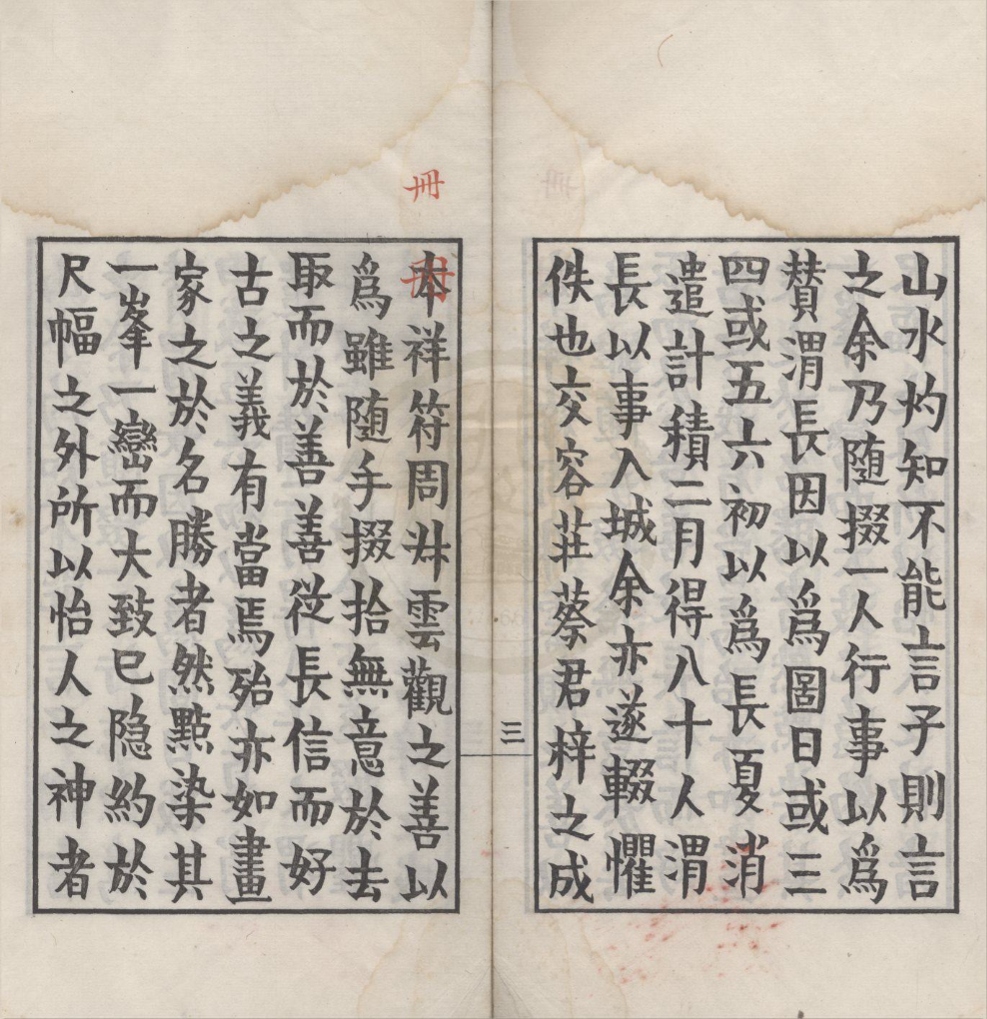 山水灼知不能言子則言
之余乃随掇一人行事以為
賛渭長因以為圖日或三
四或五六初以為長夏消
遣計積二月得八十人渭
長以事入城余亦遂輟懼
佚也交容荘蔡君梓之成
三
冊
冊
本祥符周廾雲觀之善以
為雖随手掇拾無意於去
取而於善善從長信而好
古之義有當焉殆亦如畫
家之於名勝者然點染其
一峯一巒而大致已隐約於
尺幅之外所以怡人之神者